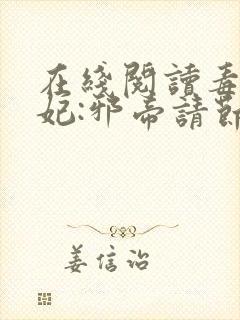 在綫閱讀毒
妃:邪帝請節
姜信詒